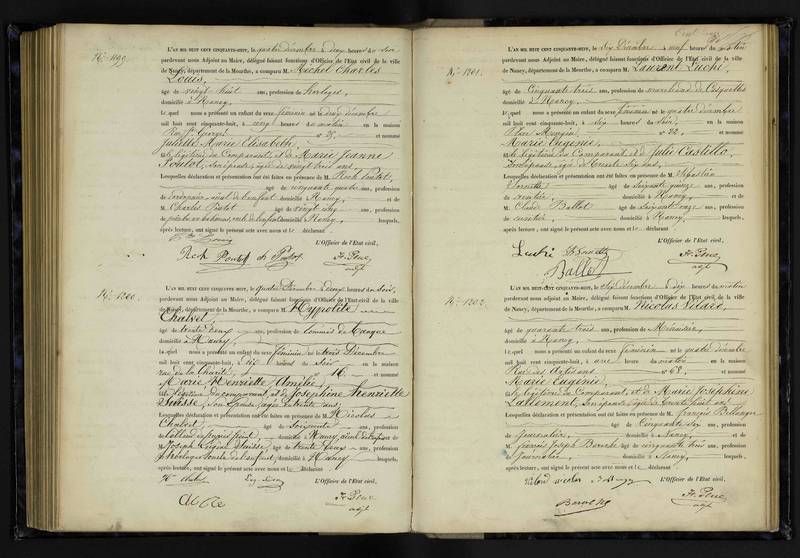 N°. 1199.
L'AN MIL HUIT CENT CINQUANTE-HUIT, le quatre décembre à deux heures du soir
pardevant nous Adjoint au Maire, délégué faisant fonctions d'Officier de l'Etat civil de la ville
de Nancy, département de la Meurthe, a comparu M. Michel Charles
Louis,
âgé de vingt huit ans, profession d'horloger,
domicilié à Nancy,
Lequel nous a présenté un enfant du sexe féminin né le deux décembre
mil huit cent cinquante-huit, à onze heures du matin en la maison
Rue St Georges n° 25, et nommé
Juliette Marie Elisabeth,
fille légitime du Comparant, et de Marie Jeanne
Poutot, son épouse, âgée de vingt trois ans
Lesquelles déclaration et présentation ont été faites en présence de M. Roch Poutot,
âgé de cinquante quatre ans, profession
de aïeul de l'enfant domicilié à Nancy, et de
M. Charles Poutot âgé de vingt cinq ans, profession
de oncle de l'enfant domicilié à Nancy, lesquels,
après lecture, ont signé le présent acte avec nous et le déclarant
L'Officier de l'Etat civil,
Roch Poutot ch Poutot
adjt
N°. 1200.
L'AN MIL HUIT CENT CINQUANTE-HUIT, le quatre Décembre à deux heures du soir,
pardevant nous Adjoint au Maire, délégué faisant fonctions d'Officier de l'Etat civil de la ville
de Nancy, département de la Meurthe, a comparu M. Hypolite
âgé de trente deux ans, profession de commis de banque
domicilié à Nancy,
Lequel nous a présenté un enfant du sexe féminin né le trois Décembre
mil huit cent cinquante-huit, à six heures du soir en la maison
rue de la Charité, n° 16 et nommé
Marie Henriette Amélie,
fille légitime du comparant, et de Josephine Henriette
son épouse âgée de trente ans,
Lesquelles déclaration et présentation ont été faites en présence de M. Nicolas
âgé de soixante ans, profession
domicilié à Nancy,
M. Joseph âgé de trente deux ans, profession
d'horloger oncle de l'enfant domicilié à Nancy lesquels,
après lecture, ont signé le présent acte avec nous et le déclarant
L'Officier de l'Etat civil,
adjt
N°. 1201.
L'AN MIL HUIT CENT CINQUANTE-HUIT, le six Décembre à neuf heures du matin
pardevant nous Adjoint au Maire, délégué faisant fonctions d'Officier de l'Etat civil de la ville
de Nancy, département de la Meurthe, a comparu M. Laurent Luchi,
âgé de Cinquante trois ans, profession de marchand de Casquettes
domicilié à Nancy,
Lequel nous a présenté un enfant du sexe féminin né le quatre décembre
mil huit cent cinquante-huit, à six heures du soir, en la maison
Place Mengin, n° 22, et nommé
Marie Eugénie,
fille légitime du Comparant et de Julie Castillo,
son épouse, âgée de trente six ans,
Lesquelles déclaration et présentation ont été faites en présence de M. Sébastien
âgé de soixante quinze ans, profession
de rentier, domicilié à Nancy, et de
M. Claude Ballet âgé de soixante onze ans, profession
de rentier, domicilié à Nancy, lesquels,
après lecture, ont signé le présent acte avec nous et le déclarant
L'Officier de l'Etat civil,
Luchi
Ballet
adjt
N°. 1202.
L'AN MIL HUIT CENT CINQUANTE-HUIT, le six décembre à dix heures du matin
pardevant nous Adjoint au Maire, délégué faisant fonctions d'Officier de l'Etat civil de la ville
de Nancy, département de la Meurthe, a comparu M. Nicolas
âgé de quarante trois ans, profession de
domicilié à Nancy,
Lequel nous a présenté un enfant du sexe féminin né le quatre décembre
mil huit cent cinquante-huit, à onze heures du matin en la maison
Rue des Artisans n° 68, et nommé
Marie Eugénie,
fille légitime du Comparant, et de Marie Joséphine
Lallement, son épouse, âgée de trente huit ans
Lesquelles déclaration et présentation ont été faites en présence de M. François
âgé de Cinquante six ans, profession
de Journalier, domicilié à Nancy, et de
M. François Joseph âgé de cinquante trois ans, profession
de Journalier, domicilié à Nancy, lesquels,
après lecture, ont signé le présent acte avec nous et le déclarant
L'Officier de l'Etat civil,
adjt